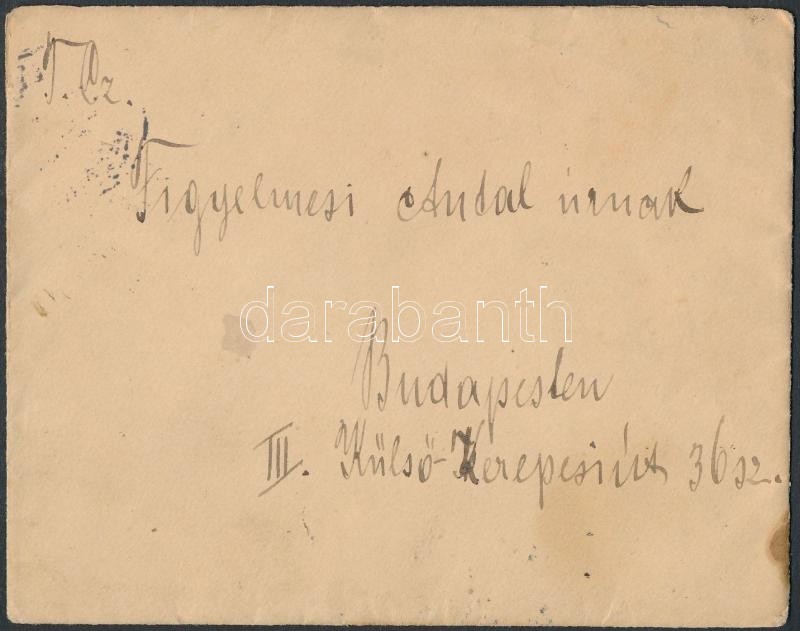 T. Cz.
Figyelmesi Antal úrnak
darabanth
Budapesten
III. Külső-Kerepesiút 36 sz.